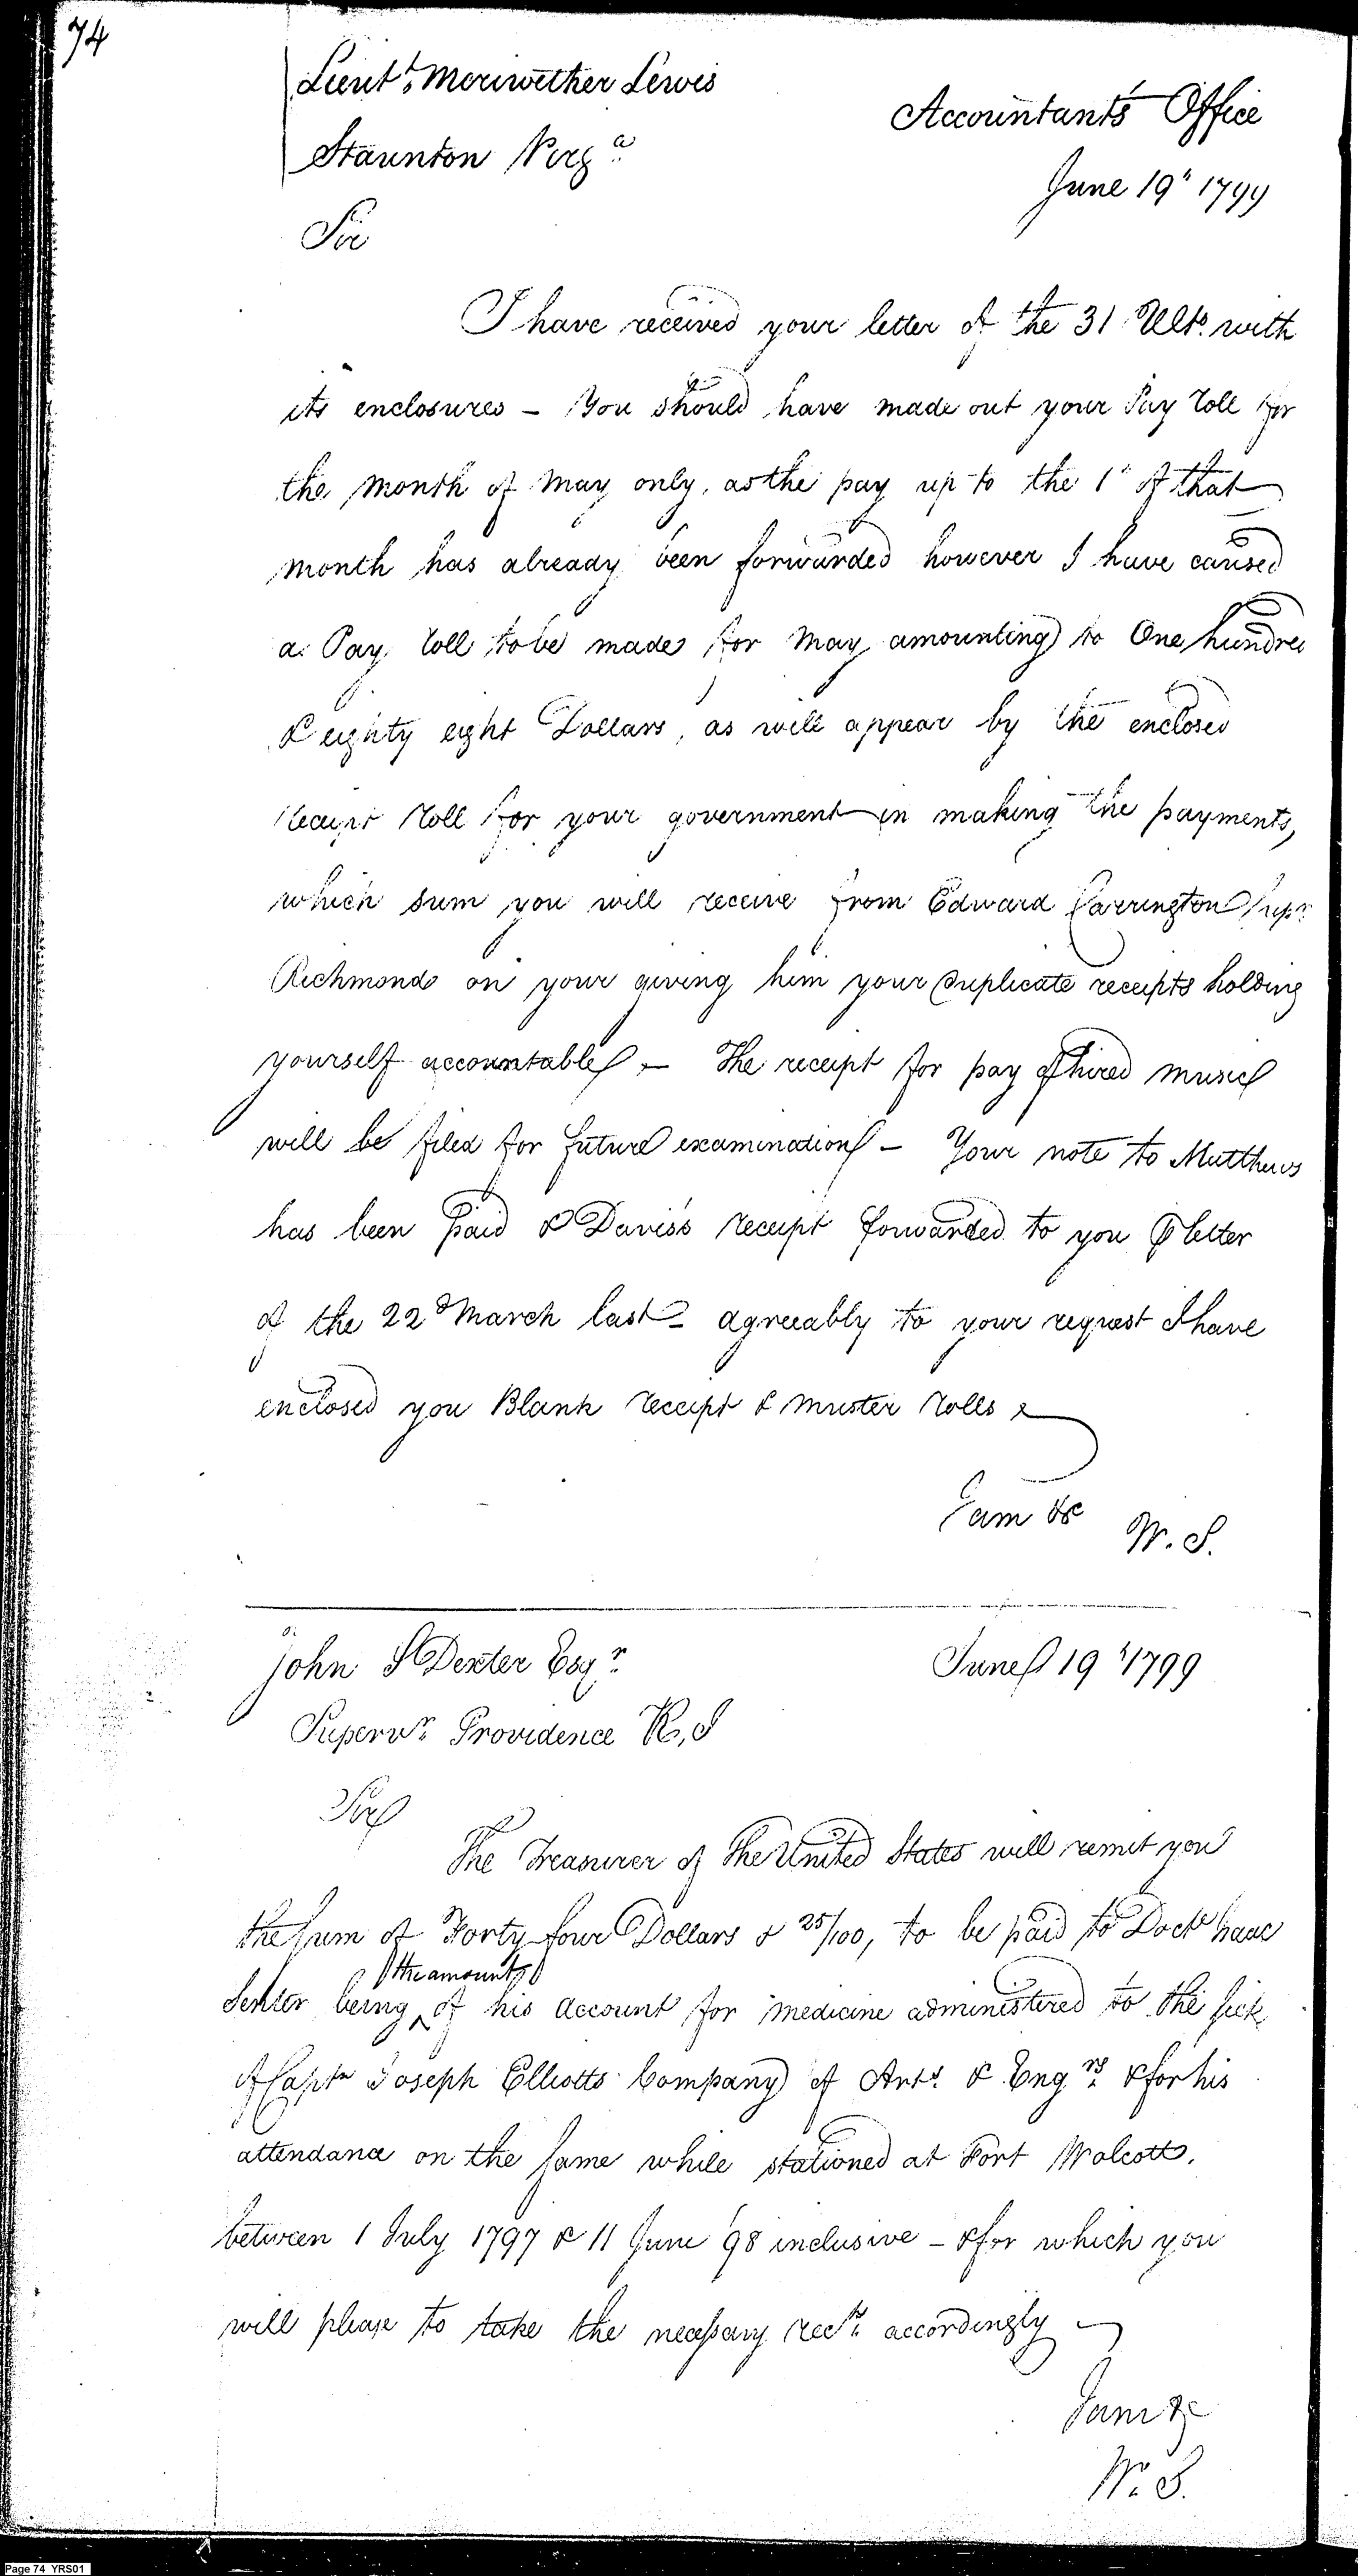 74
Lieut. Meriwether Lewis
Accountants Office
Staunton Virga.
June 19th 1799
Sir
I have received your letter of the 31 Ulto. with
its enclosures – You should have made out your Pay roll for
the month of May only, as the pay up to the 1st of that
month has already been forwarded however I have caused
a Pay roll to be made for May amounting to One hundred
& eighty eight Dollars, as will appear by the enclosed
receipt roll for your government in making the payments,
which sum you will receive from Edward Carrington Supr.
Richmond on your giving him your duplicate receipts holding
yourself accountable – The receipt for pay of hired music
will be filed for future examination – Your note to Matthews
has been paid & Davis's receipt forwarded to you ⅌ letter
of the 22d March last – agreeably to your request I have
enclosed you Blank receipt & muster rolls
I am &c
W. S.
John S Dexter Esqr.
June 19th 1799
Supervr. Providence R, I
Sir
The Treasurer of the United States will remit you
the sum of Forty four Dollars & 25/100, to be paid to Doctr Isaac
the amount
Senter being ^ of his account for medicine administered to the sick
of Captn Joseph Elliotts Company of Arts. & Engrs. & for his
attendance on the same while stationed at Fort Wolcott,
between 1 July 1797 & 11 June 98 inclusive – & for which you
will please to take the necessary rects. accordingly
I am &c
W. S.
Page 74 YRS01